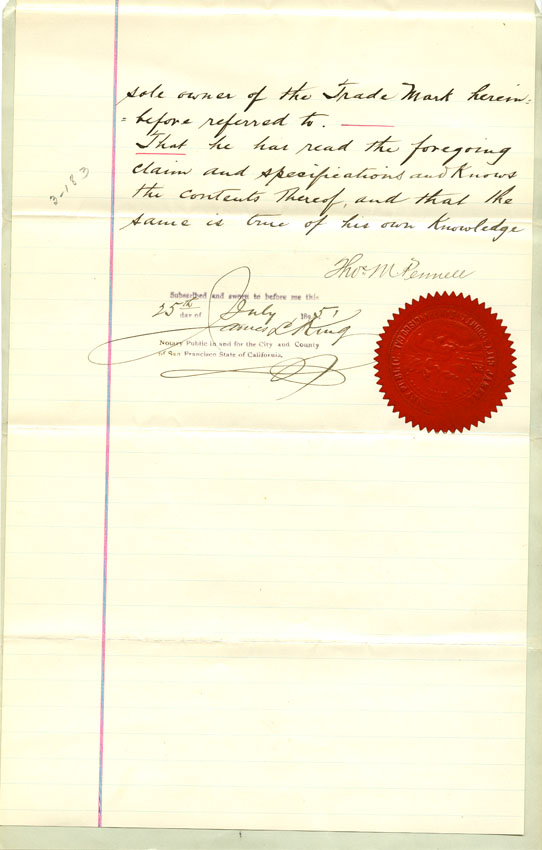 sole owner of the Trade Mark herein=
=before referred to.
That he has read the foregoing
claim and specifications and Knows
the contents thereof, and that the
same is true of his own Knowledge
3-183
Thos M Pennell
Subscribed and sworn to before me this
25th day of July 18
James L King
Notary Public in and for the City and County
of San Francisco State of California.